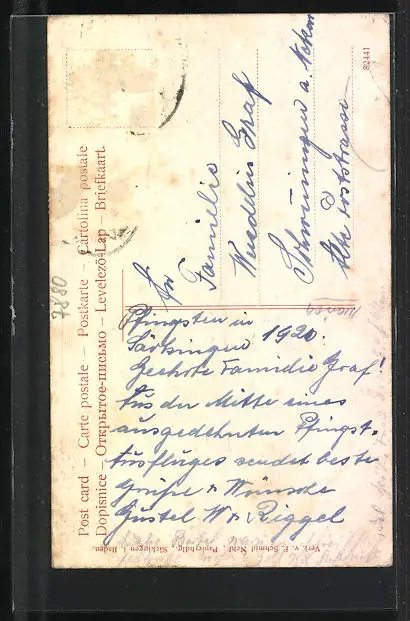 Post card – Carte postale – Postkarte – Cartolina postale
Dopisnice – Открытое письмо – Levelező-Lap – Briefkaart
7880
82441
An
Familie
Wendelin Graf
Schwenningen a. Neckar
Alte Poststrasse
Pfingsten in
Säckingen 1920.
Geehrte Familie Graf!
Aus der Mitte eines
ausgedehnten Pfingst-
Ausfluges sendet beste
Grüsse & Wünsche
Gustel W. Riggel
Verl. v. F. Schmid Nchf. Papierhdlg. Säckingen i. Baden.